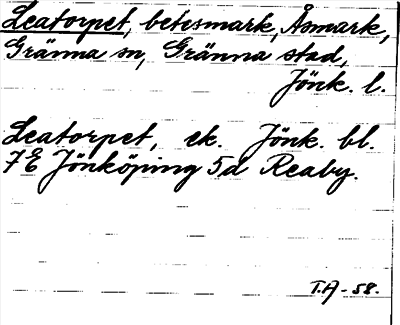 Leatorpet, betesmark, Åsmark,
Gränna sn, Gränna stad,
Jönk. l.
Leatorpet, ek. Jönk. bl.
7E Jönköping 5d Reaby.
T.A - 58.